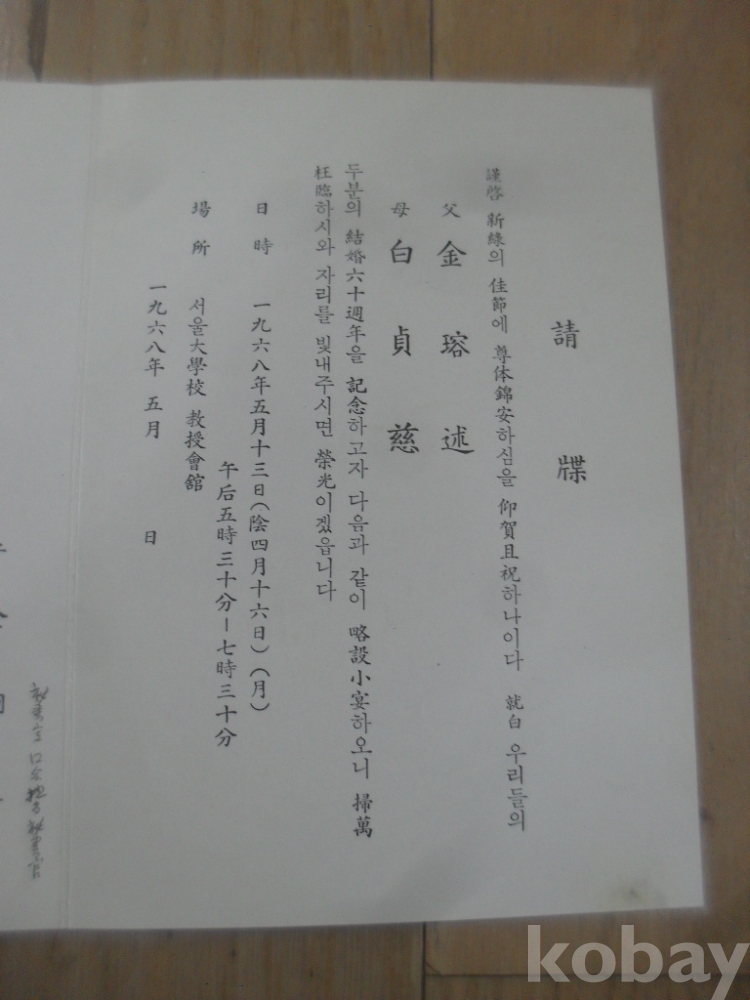 請牒
謹啓 新綠의 佳節에 尊体錦安하심을 仰賀且祝하나이다 就白 우리들의
父 金瑢述
母 白貞慈
두분의 結婚六十週年을 記念하고자 다음과 같이 略設小宴하오니 掃萬
枉臨하시와 자리를 빛내주시면 榮光이겠읍니다
日時 一九六八年五月十三日(陰四月十六日)(月)
午后五時三十分－七時三十分
場所 서울大學校 敎授會館
一九六八年 五月 日
kobay